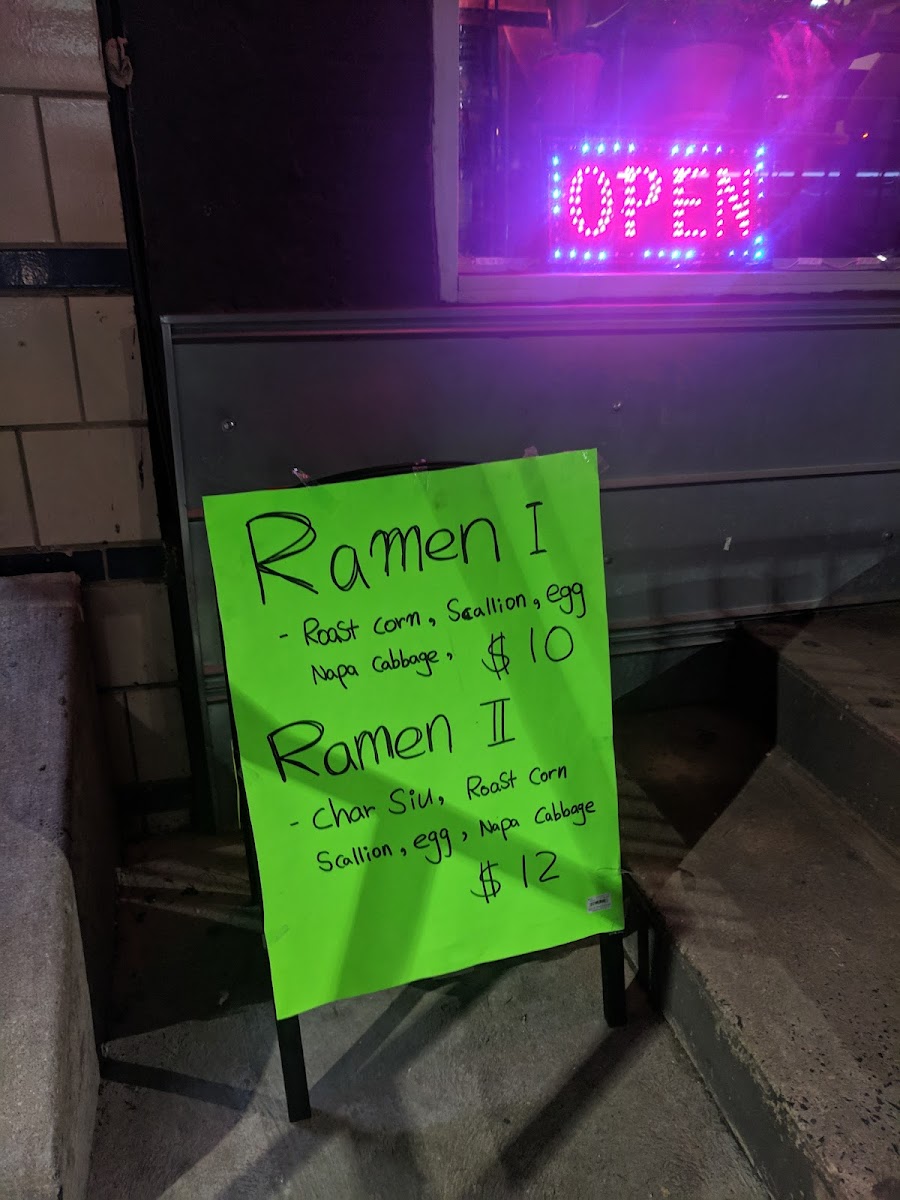 OPEN
Ramen I
- Roast corn, Scallion, egg
Napa Cabbage, $10
Ramen II
- Char Siu, Roast Corn
Scallion, egg, Napa Cabbage
$12